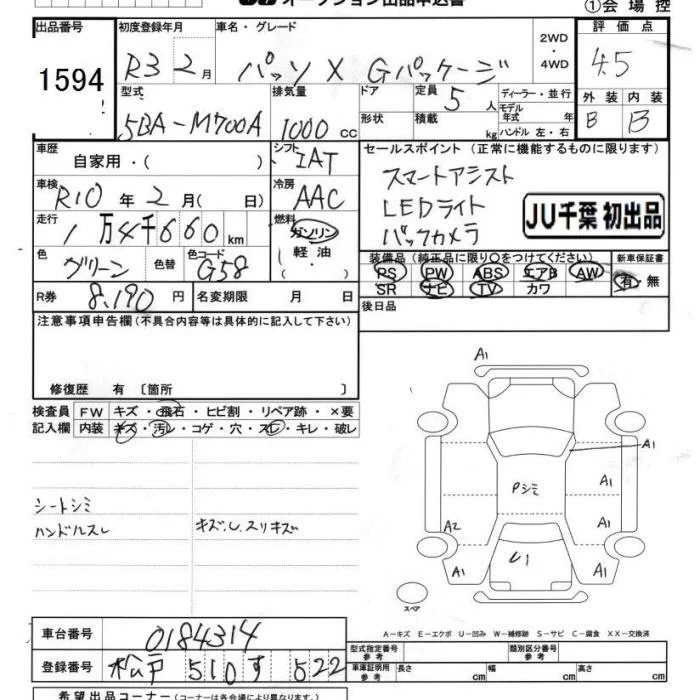 オークション出品申込書
①会場控
出品番号
1594
初度登録年月
R3 2月
車名・グレード
パッソ X Gパッケージ
2WD
・
4WD
評価点
4.5
型式
5BA-M700A
排気量
1000 cc
ドア
形状
定員 5 人
積載 kg
ディーラー・並行
モデル
年式 年
ハンドル 左・右
外装 内装
B B
車歴
自家用・( )
シフト
IAT
車検
R10 年 2 月( 日)
冷房
AAC
走行
1万4千660 km
燃料
ガソリン
軽油
( )
色
グリーン
色替
色コード
G58
R券 8,190 円
名変期限 月 日
セールスポイント(正常に機能するものに限ります)
スマートアシスト
LEDライト
バックカメラ
JU千葉 初出品
装備品(純正品に限り○をつけてください)
PS PW ABS エアB AW
SR ナビ TV カワ
新車保証書
有・無
後日品
注意事項申告欄(不具合内容等は具体的に記入して下さい)
修復歴 有 〔箇所 〕
検査員
記入欄
FW キズ・飛石・ヒビ割・リペア跡・×要
内装 キズ・汚レ・コゲ・穴・スレ・キレ・破レ
シートシミ
ハンドルスレ
キズ、U、スリキズ
A1
A1
A1
Pシミ
A2
A1
U1
A1
A1
スペア
A－キズ E－エクボ U－凹み W－補修跡 S－サビ C－腐食 XX－交換済
車台番号 0184314
登録番号 松戸 510 す 522
型式指定番号
参考
類別区分番号
参考
車庫証明用
参考
長さ cm 幅 cm 高さ cm
希望出品コーナー(コーナーは各会場により異なります。)